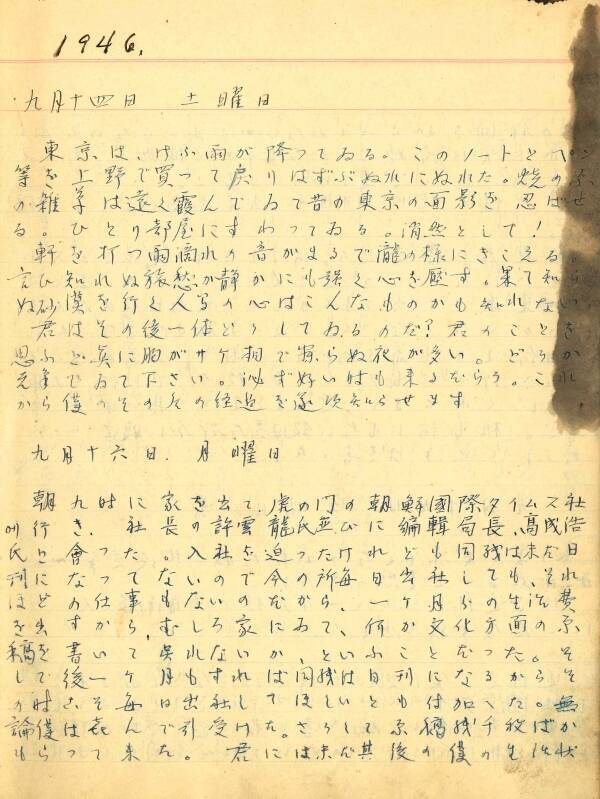 1946.
九月十四日 土曜日
東京は、けふ雨が降つてゐる。このノートとペン
等を上野で買って戻りはずぶぬれにぬれた。焼の原
の雑草は遠く霞んでゐて昔の東京の面影を忍ばせ
る。ひとり部屋にすわつてゐる。消然として!
軒を打つ雨滴れの音がまるで瀧の様にきこえる。
言ひ知れぬ旅愁が静かにも強く心を壓す。果て知ら
ぬ砂漠を行く人等の心はこんなものかも知れない。
君はその後一体どうしてゐるのだ?君のことを
思ふと真に胸がサケ相で寝らぬ夜が多い。どうか
元氣でゐて下さい。必ず好い時も来るだらう。これ
から僕のその后の経過を逐次知らせます
九月十六日. 月曜日
朝九時に家を出て、虎の門の朝鮮國際タイムス社
に行き、社長の許雲龍氏並びに編輯局長、高成浩
氏と會つた。入社を迫つたけれども同残は未だ日
刊になつてないので今の所毎日出社しても、それ
ほどの仕事もないのだから、一ヶ月分の生活費
を出すから、むしろ家にゐて、何か文化方面の原
稿を書いて呉れないか、といふことだつた。そ
して後一ヶ月もすれば同残は日刊になるからそ
の時こそ毎日出社してほしいとも付加へた。無
論僕は喜んで引受けた。さうして原稿残千枚ばか
もらつて来た。君には未だ其後の僕の生活状